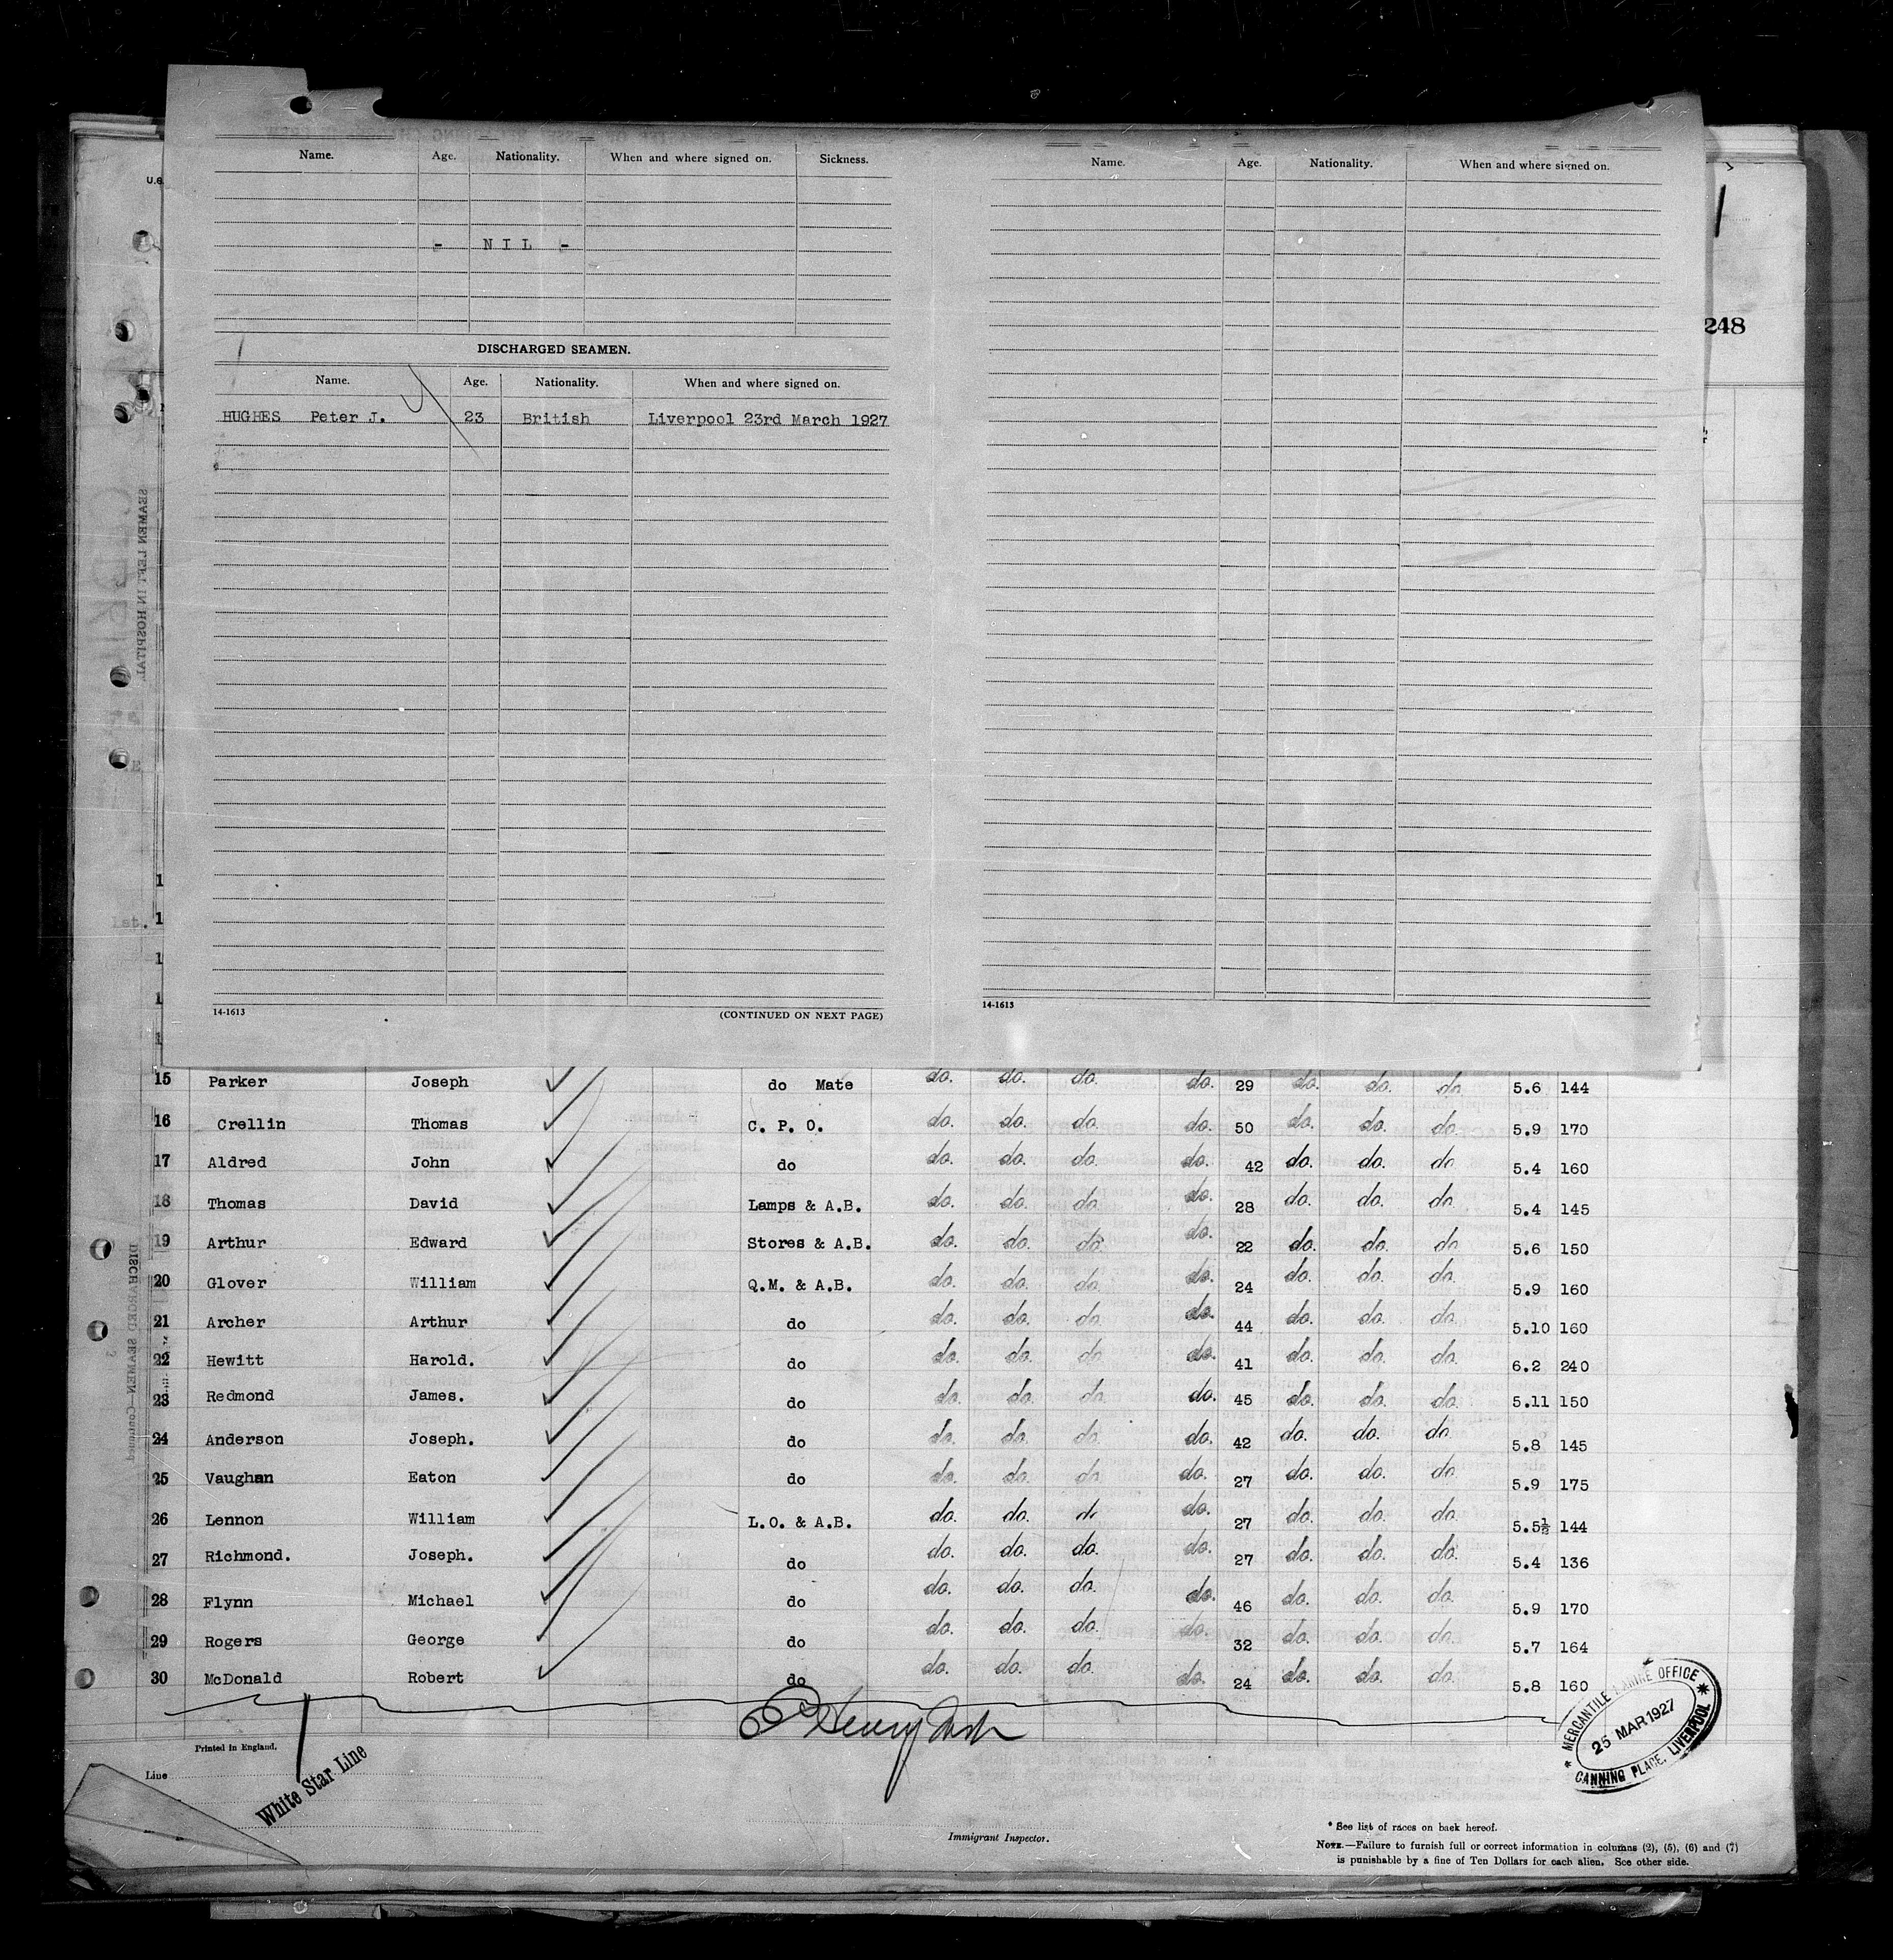 Name. Age. Nationality. When and where signed on. Sickness.
- NIL -
DISCHARGED SEAMEN.
Name. Age. Nationality. When and where signed on.
HUGHES Peter J. 23 British Liverpool 23rd March 1927
14-1613 (CONTINUED ON NEXT PAGE)
Name. Age. Nationality. When and where signed on.
14-1613
248
15 Parker Joseph do Mate do. do. do. do. 29 do. do. do 5.6 144
16 Crellin Thomas C. P. O. do. do. do. do. 50 do. do. do. 5.9 170
17 Aldred John do do. do. do. do. 42 do. do. do 5.4 160
18 Thomas David Lamps & A.B. do. do. do. do. 28 do. do. do. 5.4 145
19 Arthur Edward Stores & A.B. do. do. do. do. 22 do. do. do 5.6 150
20 Glover William Q.M. & A.B. do. do. do. do. 24 do. do. do. 5.9 160
21 Archer Arthur do do. do. do. do. 44 do. do. do. 5.10 160
22 Hewitt Harold. do do. do. do do. 41 do. do. do. 6.2 240
23 Redmond James. do do. do. do do. 45 do. do. do. 5.11 150
24 Anderson Joseph. do do. do. do do. 42 do. do. do. 5.8 145
25 Vaughan Eaton do do. do. do do. 27 do. do. do 5.9 175
26 Lennon William L.O. & A.B. do. do. do do. 27 do. do. do. 5.5½ 144
27 Richmond. Joseph. do do. do. do. do. 27 do. do. do. 5.4 136
28 Flynn Michael do do. do. do. do. 46 do. do. do. 5.9 170
29 Rogers George do do. do. do. do. 32 do. do. do. 5.7 164
30 McDonald Robert do do. do. do. do. 24 do. do. do. 5.8 160
Printed in England.
Line
White Star Line
Immigrant Inspector.
MERCANTILE MARINE OFFICE
25 MAR 1927
CANNING PLACE, LIVERPOOL
* See list of races on back hereof.
NOTE.—Failure to furnish full or correct information in columns (2), (5), (6) and (7)
is punishable by a fine of Ten Dollars for each alien. See other side.
SEAMEN LEFT IN HOSPITAL
DISCHARGED SEAMEN—Continued